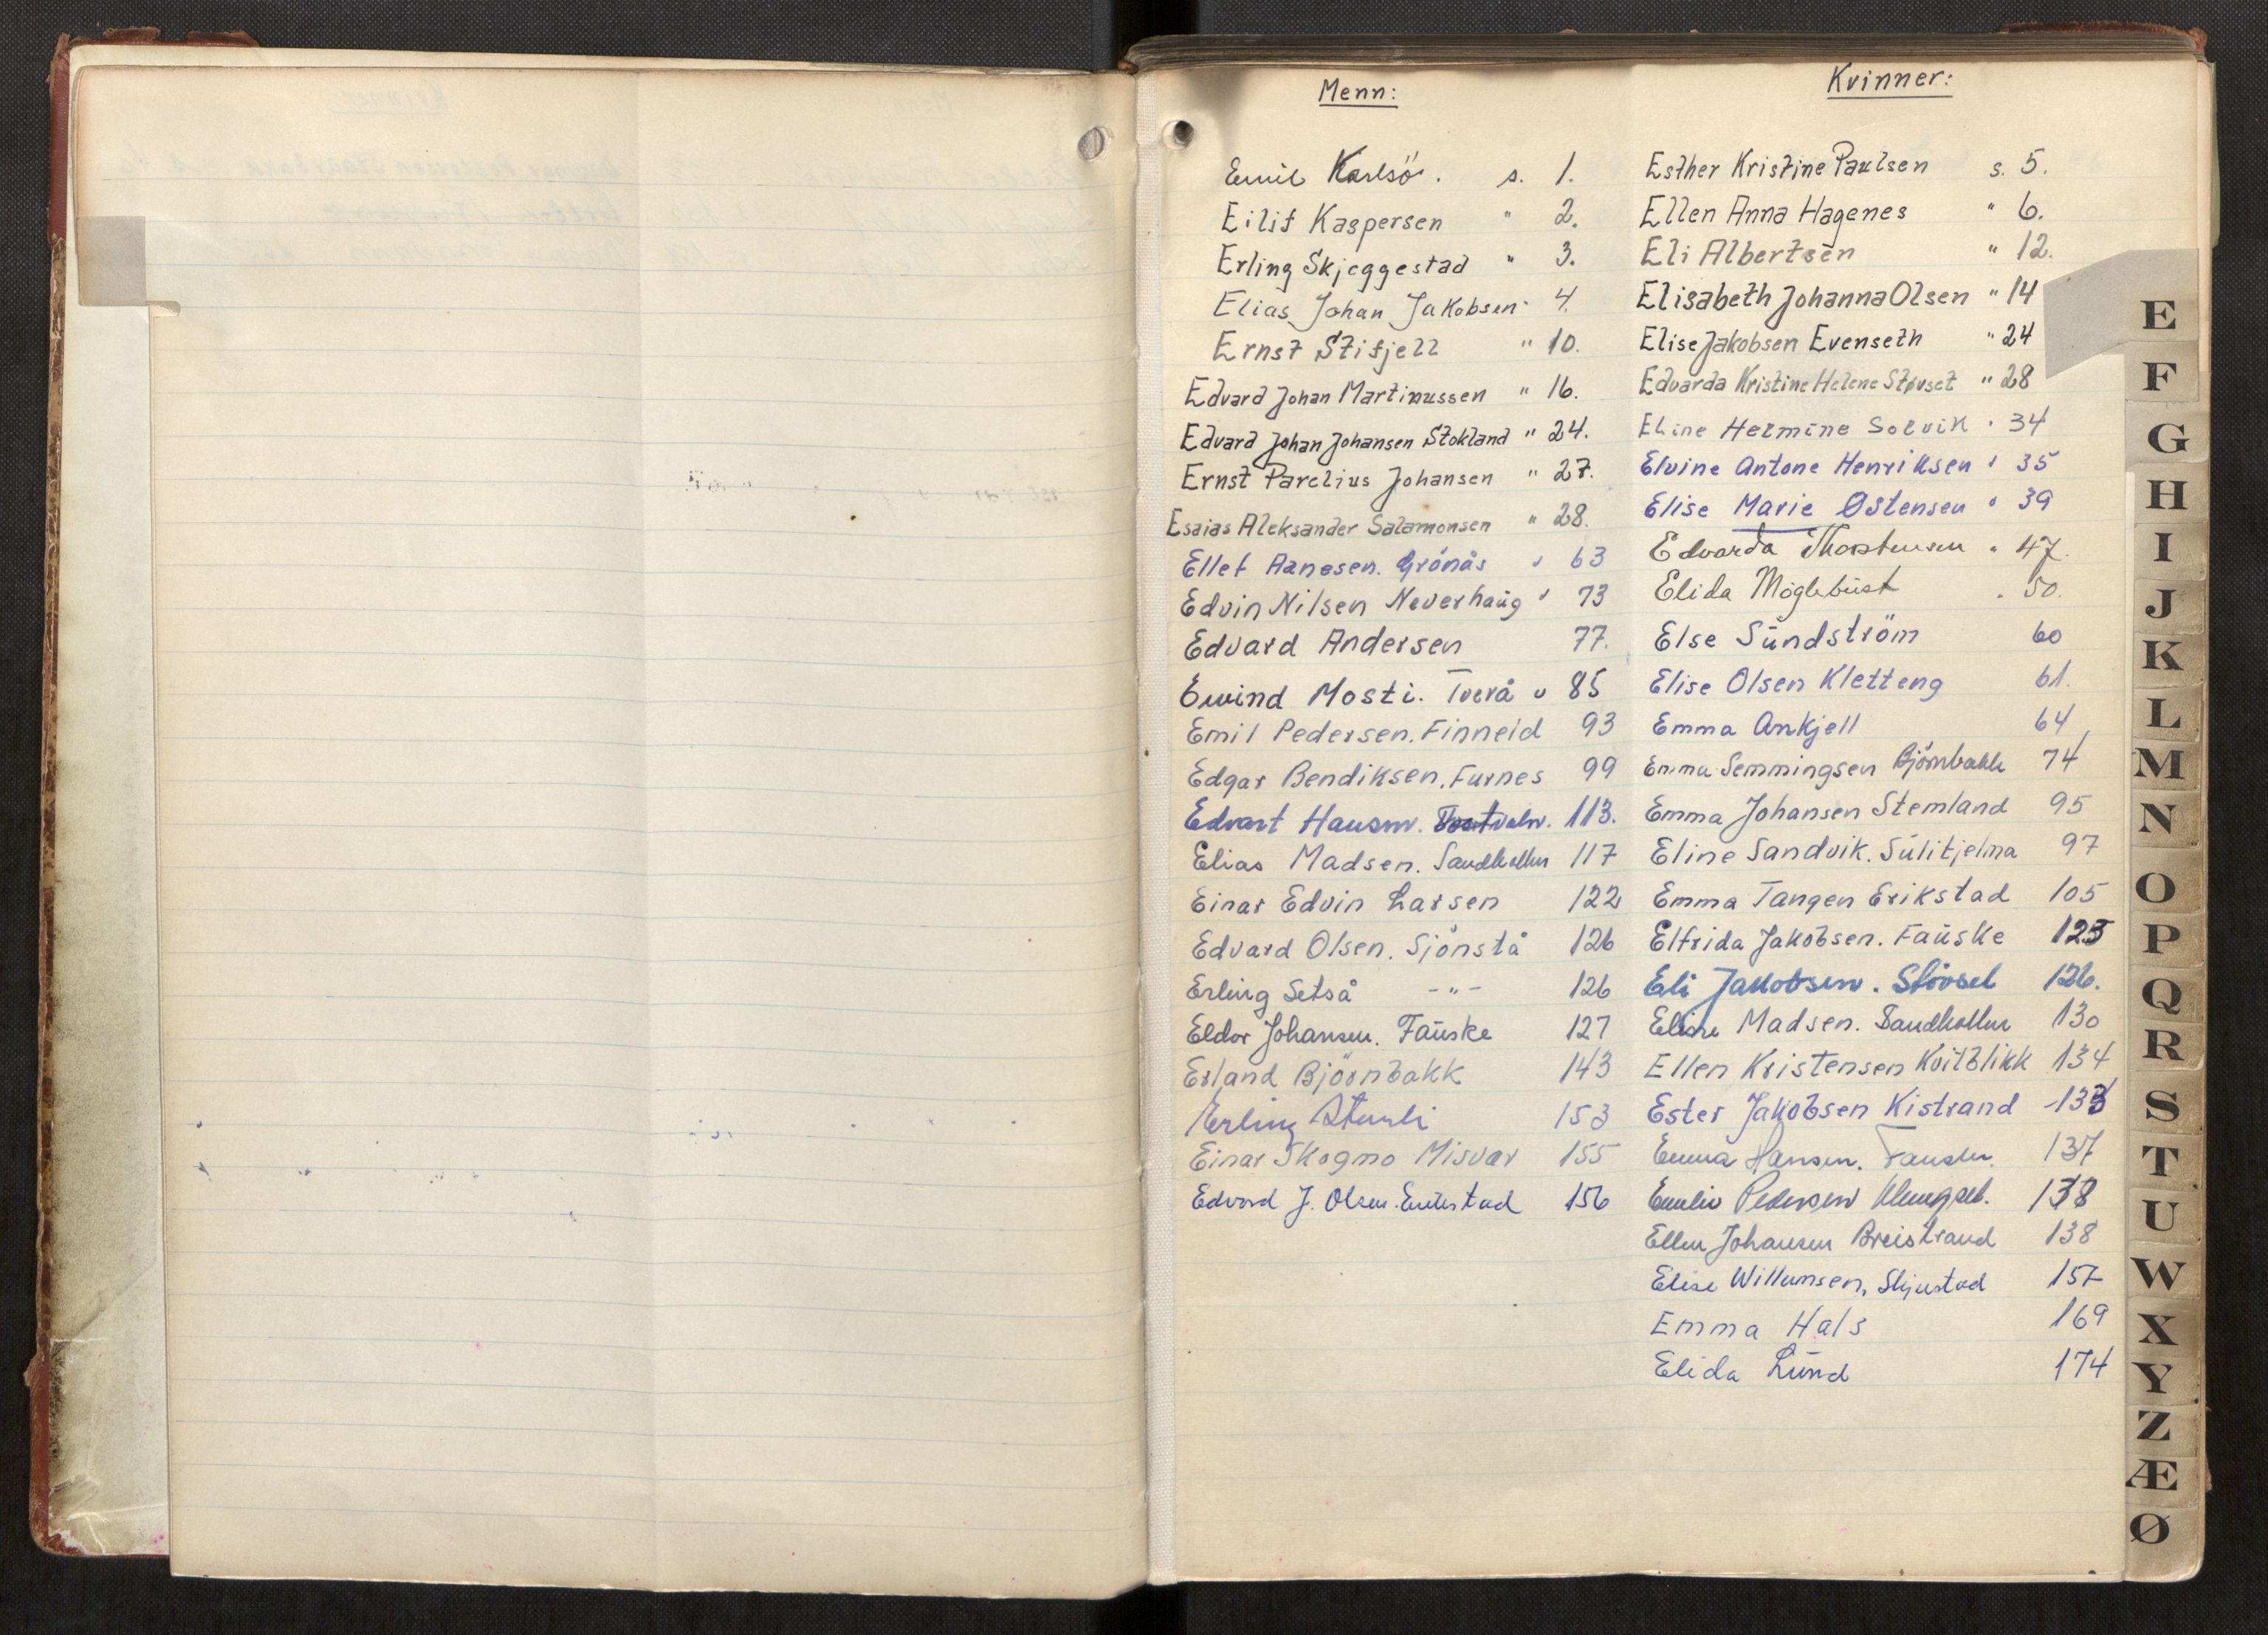 Menn:
Emil Karlsö. s. 1.
Eilif Kaspersen " 2.
Erling Skjeggestad " 3.
Elias Johan Jakobsen " 4.
Ernst Stifjell " 10.
Edvard Johan Martinussen " 16.
Edvard Johan Johansen Stokland " 24.
Ernst Parelius Johansen " 27.
Esaias Aleksander Salamonsen " 28.
Ellef Arnesen. Grönås " 63
Edvin Nilsen Neverhaug " 73
Edvard Andersen 77.
Ewind Mosti. Tverå " 85
Emil Pedersen. Finneid 93
Edgar Bendiksen. Furnes 99
Edvart Hansen. 113.
Elias Madsen. Sandkollen 117
Einar Edvin Larsen 122
Edvard Olsen. Sjönstå 126
Erling Setså -"- 126
Eldor Johansen. Fauske 127
Erland Björnbakk 143
Erling 153
Einar Skogmo Misvær 155
Edvard J. Olsen. 156
Kvinner:
Esther Kristine Paulsen s. 5.
Ellen Anna Hagenes " 6.
Eli Albertsen " 12.
Elisabeth Johanna Olsen " 14
Elise Jakobsen Evenseth " 24
Edvarda Kristine Helene Støvset " 28
Eline Hermine Solvik " 34
Elvine Antone Henriksen " 35
Elise Marie Østensen " 39
Edvarda Thorstensen " 47.
Elida Möglebust " 50.
Else Sundström 60
Elise Olsen Kletteng 61.
Emma Ankjell 64
Emma Semmingsen Björnbakk 74
Emma Johansen Stemland 95
Eline Sandvik. Sulitjelma 97
Emma Tangen Erikstad 105
Elfrida Jakobsen. Fauske 125
Eli Jakobsen. Stövset 126.
Madsen. Sandkollen 130
Ellen Kristensen Kvitblikk 134
Ester Jakobsen Kistrand 133
Emma Hansen. Fauske. 137
Emilie Pedersen Klungset. 138
Ellen Johansen Breistrand 138
Elise Willumsen, 157
Emma Hals 169
Elida Lund 174
E
F
G
H
I
J
K
L
M
N
O
P
Q
R
S
T
U
W
X
Y
Z
Æ
Ø